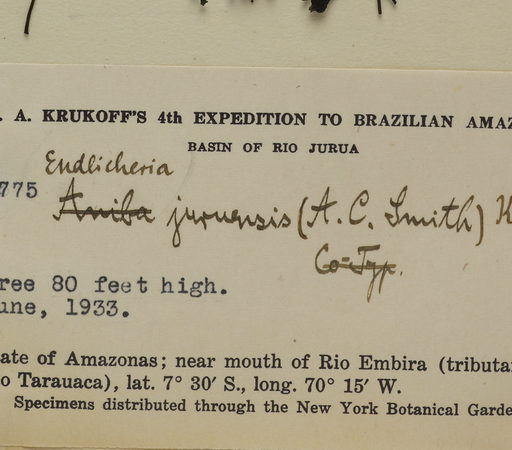 . A. KRUKOFF'S 4th EXPEDITION TO BRAZILIAN AMAZ
BASIN OF RIO JURUA
Endlicheria
775 Aniba juruensis (A. C. Smith) K
Co-Typ.
ree 80 feet high.
une, 1933.
ate of Amazonas; near mouth of Rio Embira (tributa
o Tarauaca), lat. 7° 30′ S., long. 70° 15′ W.
Specimens distributed through the New York Botanical Garde